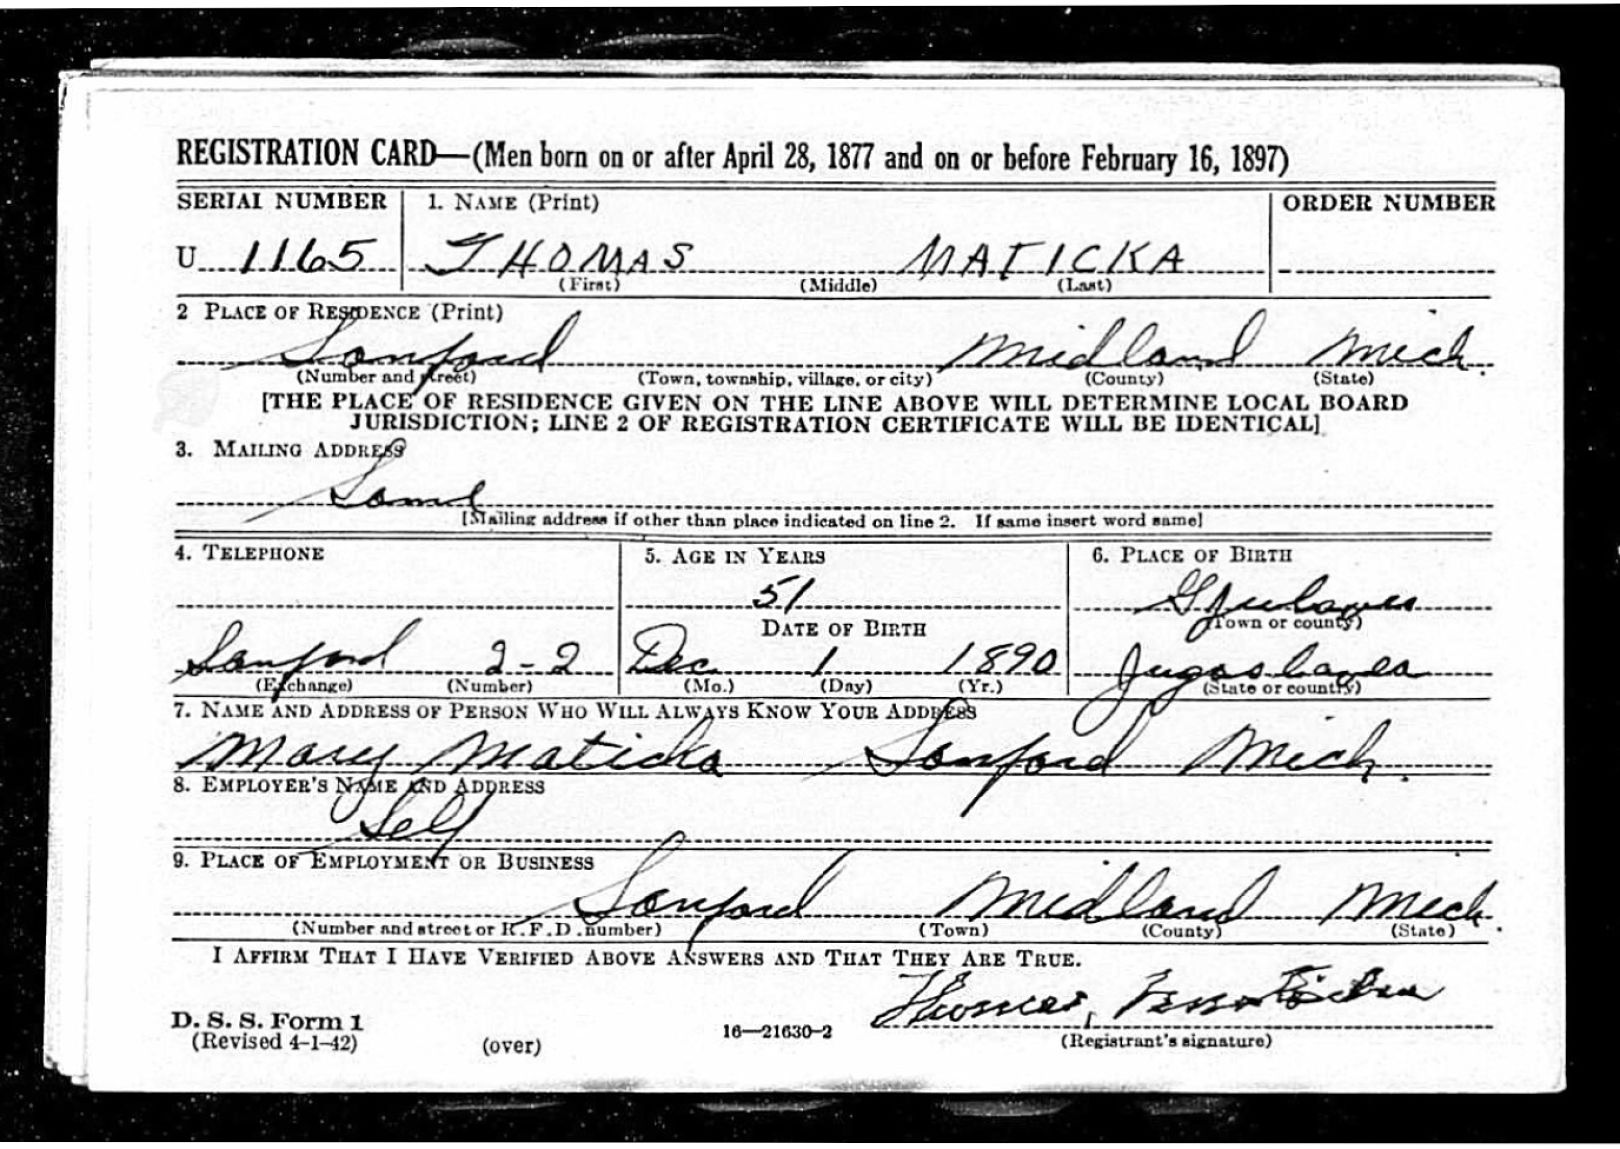 REGISTRATION CARD—(Men born on or after April 28, 1877 and on or before February 16, 1897)
SERIAL NUMBER 1. NAME (Print) ORDER NUMBER
U 1165 THOMAS MATICKA
(First) (Middle) (Last)
2 PLACE OF RESIDENCE (Print)
Sanford Midland Mich.
(Number and street) (Town, township, village, or city) (County) (State)
[THE PLACE OF RESIDENCE GIVEN ON THE LINE ABOVE WILL DETERMINE LOCAL BOARD
JURISDICTION; LINE 2 OF REGISTRATION CERTIFICATE WILL BE IDENTICAL]
3. MAILING ADDRESS
Same
[Mailing address if other than place indicated on line 2. If same insert word same]
4. TELEPHONE 5. AGE IN YEARS 6. PLACE OF BIRTH
51
DATE OF BIRTH (Town or county)
Sanford 2-2 Dec 1 1890
(Exchange) (Number) (Mo.) (Day) (Yr.) (State or country)
7. NAME AND ADDRESS OF PERSON WHO WILL ALWAYS KNOW YOUR ADDRESS
Mary Maticka Sanford Mich.
8. EMPLOYER'S NAME AND ADDRESS
Self
9. PLACE OF EMPLOYMENT OR BUSINESS
Sanford Midland Mich.
(Number and street or R.F.D. number) (Town) (County) (State)
I AFFIRM THAT I HAVE VERIFIED ABOVE ANSWERS AND THAT THEY ARE TRUE.
Thomas
D. S. S. Form 1
(Revised 4-1-42) (over) 16—21630-2 (Registrant's signature)